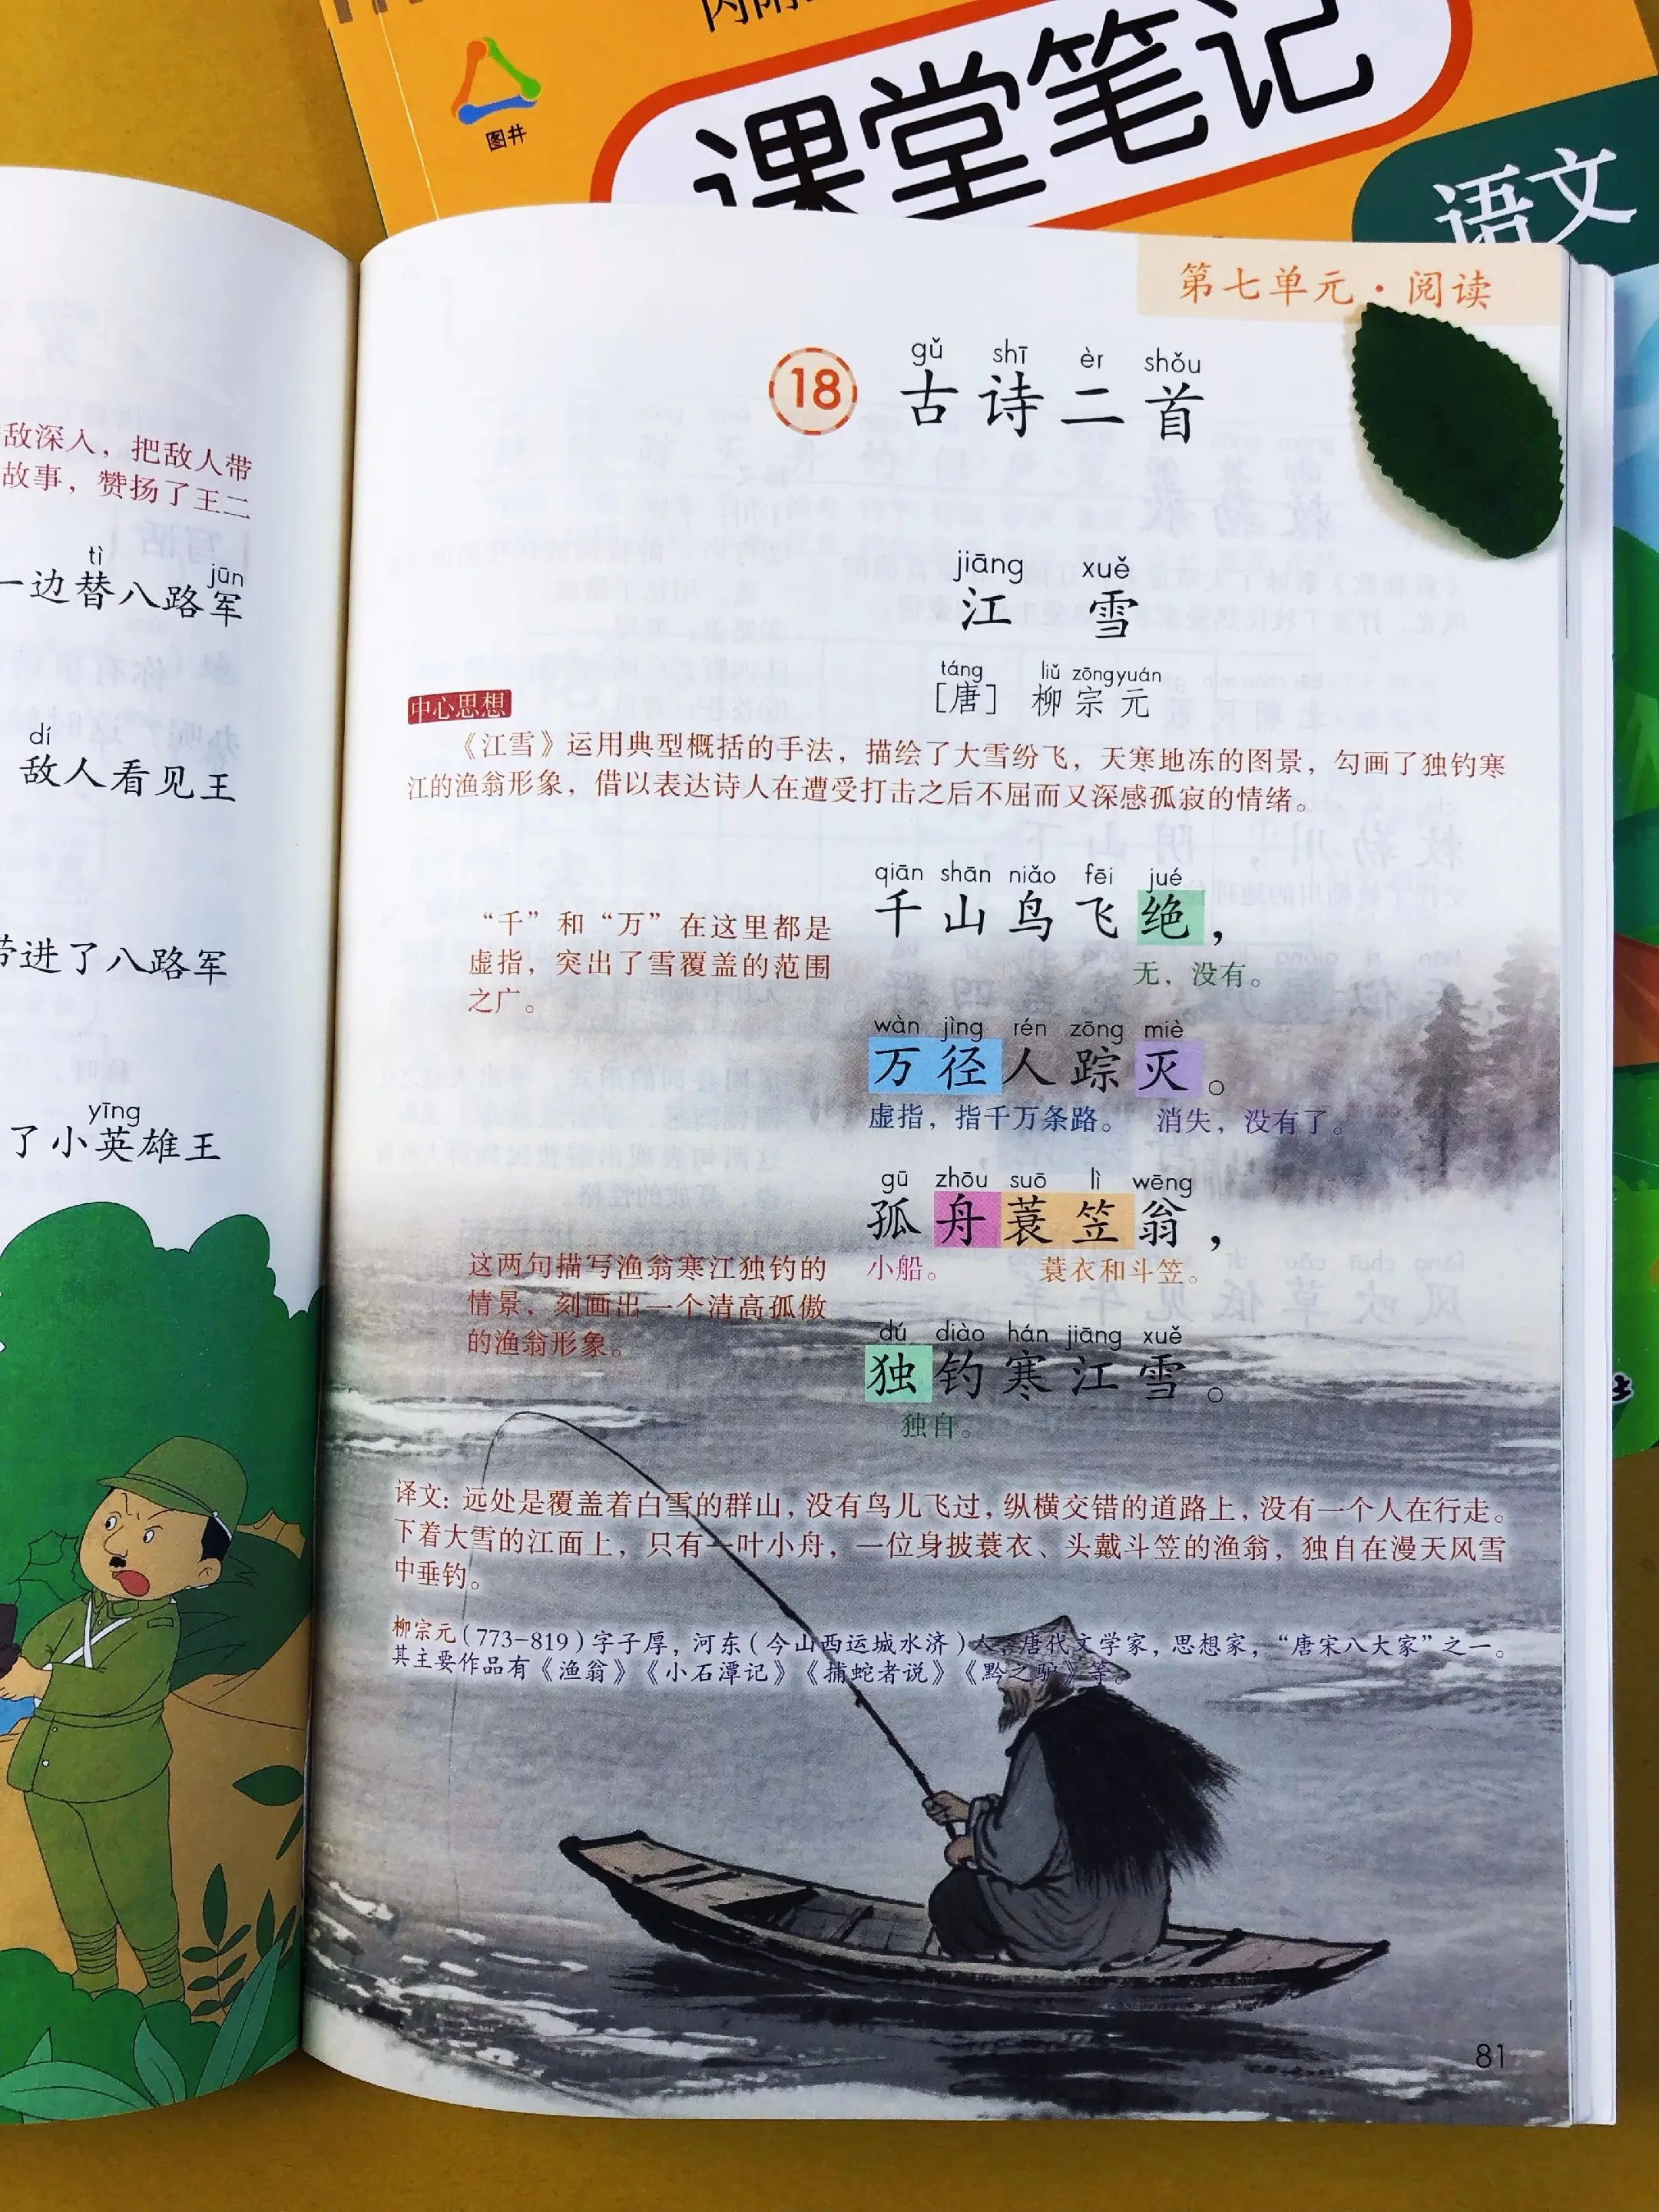 课堂笔记
语文
图井
敌深入，把敌人带
故事，赞扬了王二
tì jūn
一边替八路军
dí
敌人看见王
带进了八路军
yīng
了小英雄王
第七单元·阅读
gǔ shī èr shǒu
18 古诗二首
jiāng xuě
江 雪
táng liǔ zōng yuán
［唐］ 柳宗元
中心思想
《江雪》运用典型概括的手法，描绘了大雪纷飞，天寒地冻的图景，勾画了独钓寒
江的渔翁形象，借以表达诗人在遭受打击之后不屈而又深感孤寂的情绪。
qiān shān niǎo fēi jué
千山鸟飞绝，
无，没有。
“千”和“万”在这里都是
虚指，突出了雪覆盖的范围
之广。
wàn jìng rén zōng miè
万径人踪灭。
虚指，指千万条路。 消失，没有了。
gū zhōu suō lì wēng
孤舟蓑笠翁，
小船。 蓑衣和斗笠。
这两句描写渔翁寒江独钓的
情景，刻画出一个清高孤傲
的渔翁形象。
dú diào hán jiāng xuě
独钓寒江雪。
独自。
译文：远处是覆盖着白雪的群山，没有鸟儿飞过，纵横交错的道路上，没有一个人在行走。
下着大雪的江面上，只有一叶小舟，一位身披蓑衣、头戴斗笠的渔翁，独自在漫天风雪
中垂钓。
柳宗元（773-819）字子厚，河东（今山西运城永济）人，唐代文学家，思想家，“唐宋八大家”之一。
其主要作品有《渔翁》《小石潭记》《捕蛇者说》《黔之驴》等。
81